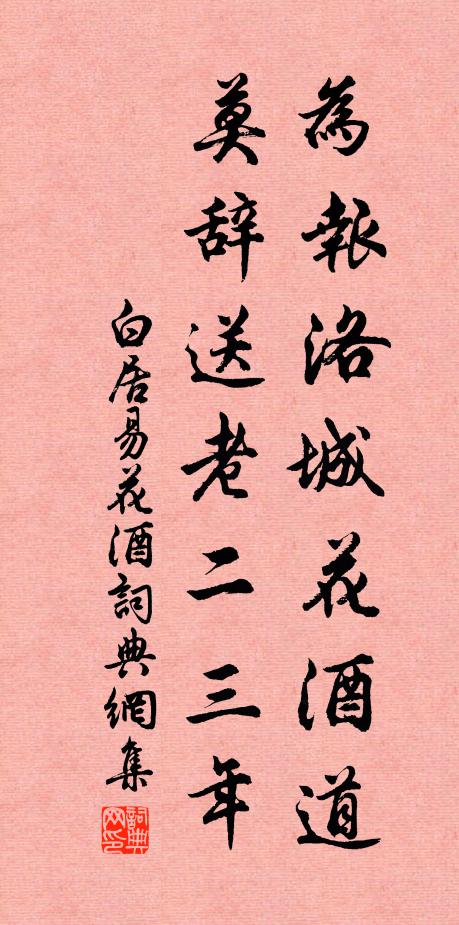 為報洛城花酒道
莫辞送老二三年
白居易花酒詞典網集
詞典网印